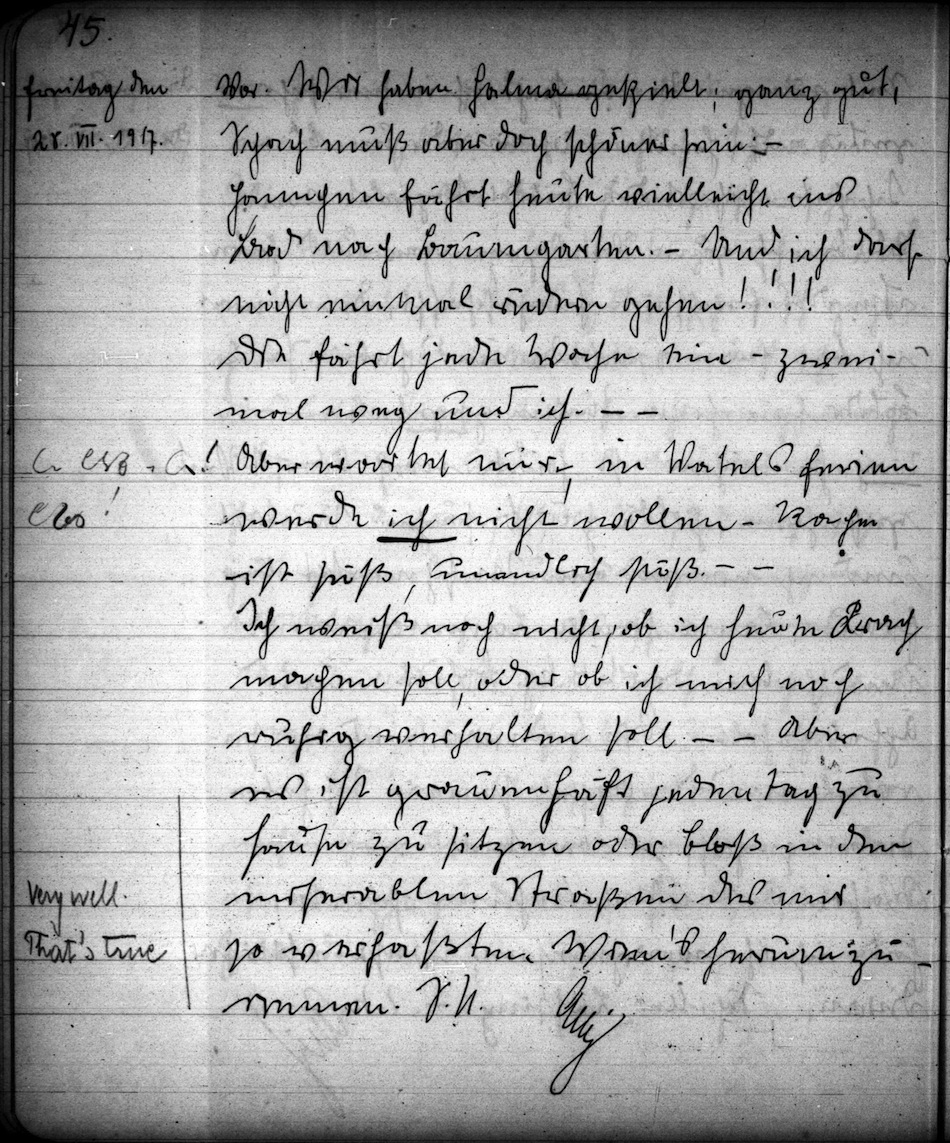 45.
Freitag den
28. VII. 1917.
Vor. Wir haben Halma gespielt; ganz gut,
Schach muß aber doch schöner sein. –
Hannchen fährt heute vielleicht ins
Bad nach Baumgarten. – Und ich darf
nicht einmal rudern gehen! ! ! !
Die fährt jede Woche ein – zwei-
mal weg und ich. – –
Aber wartet nur, in Vatels Ferien
werde ich nicht wollen – Rache
ist süß, unendlich süß. – –
Ich weiß noch nicht, ob ich heute Krach
machen soll, oder ob ich mich noch
ruhig verhalten soll. – – Aber
es ist grauenhaft jeden Tag zu
Hause zu sitzen oder bloß in den
miserablen Straßen des mir
so verhaßten Wien's herumzu-
rennen. S.U.
Very well.
That's true